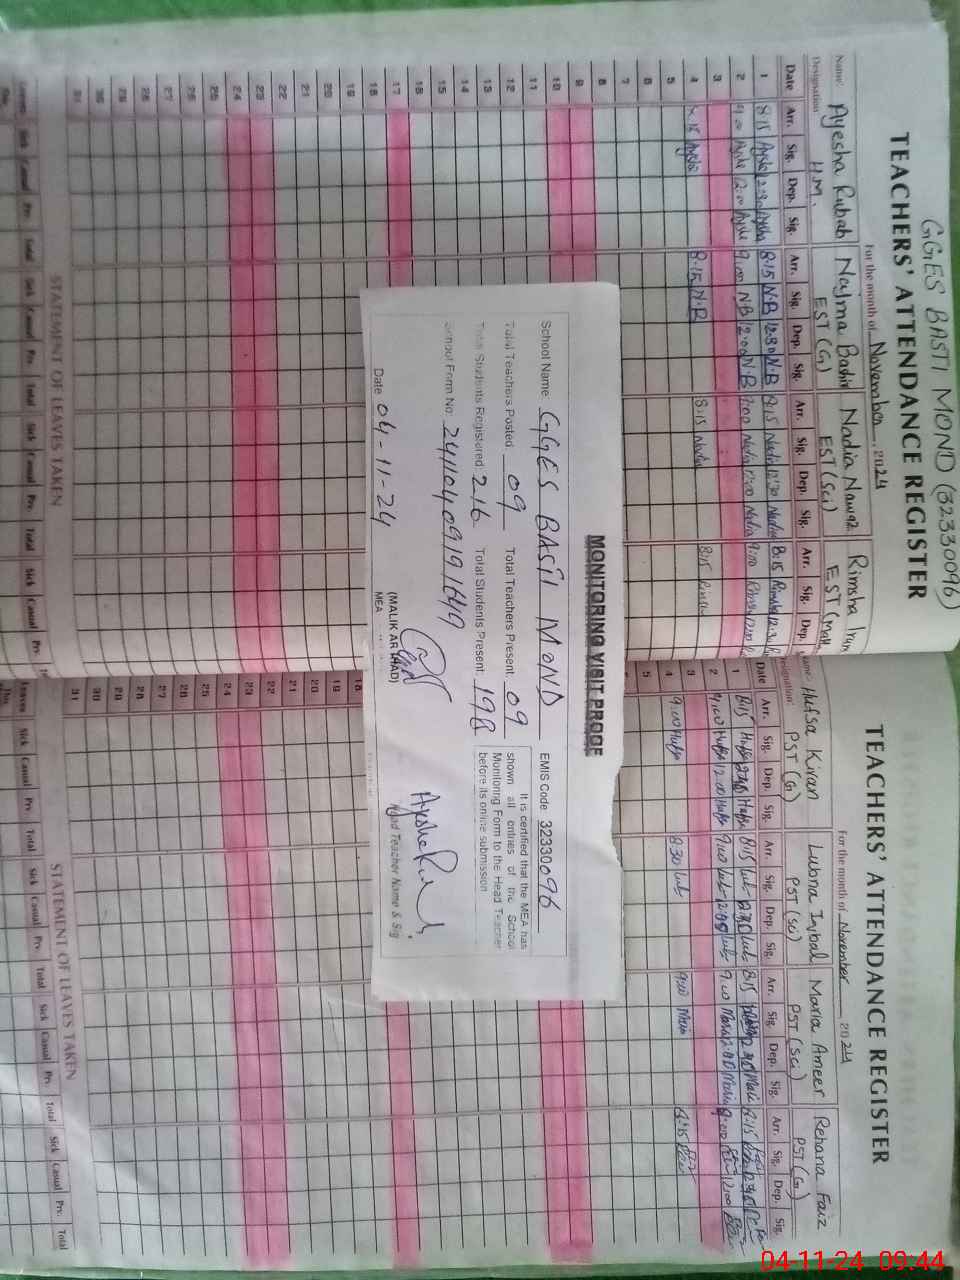 GGES BASTI MOND (32330096)
TEACHERS' ATTENDANCE REGISTER
For the month of November, 2024
Name: Ayesha Rubab Najma Bashir Nadia Nawaz Rimsha
Designation H.M. EST (G) EST (Sci) EST (Math
Date Arr. Sig. Dep. Sig. Arr. Sig. Dep. Sig. Arr. Sig. Dep. Sig. Arr. Sig. Dep.
1 8:15 12:30 8:15 N.B 12:30 N.B 8:15 Nadia 12:30 Nadia 8:15 Rimsha 12:30
2 9:00 12:00 9:00 N.B 12:00 N.B 9:00 Nadia 12:00 Nadia 9:00 12:00
3
4 8:15 N.B 8:15 Nadia 8:15
5
6
7
8
9
10
11
12
13
14
15
16
17
18
19
20
21
22
23
24
25
26
27
28
29
30
31
STATEMENT OF LEAVES TAKEN
Sick Casual Prv. Total Sick Casual Prv. Total Sick Casual Prv. Total Sick Casual Prv.
MONITORING VISIT PROOF
School Name: GGES BASTI MOND EMIS Code 32330096
Total Teachers Posted: 09 Total Teachers Present: 09
Total Students Registered: 216 Total Students Present: 198
School Form No: 24110409191649
Date 04-11-24
(MALIK ARSHAD)
MEA
It is certified that the MEA has
shown all entries of the School
Monitoring Form to the Head Teacher
before its online submission
Head Teacher Name & Sig
TEACHERS' ATTENDANCE REGISTER
For the month of November 2024
Name: Hafsa Kiran Lubna Iqbal Maria Ameer Rehana Faiz
Designation: PST (G) PST (Sci) PST (Sci) PST (G)
Date Arr. Sig. Dep. Sig. Arr. Sig. Dep. Sig. Arr. Sig. Dep. Sig. Arr. Sig. Dep. Sig.
1 8:15 8:15 Lub 12:30 Lub 8:15 8:15
2 9:00 12:00 9:00 Lub 12:00 Lub 9:00 12:00 9:00 12:00
3
4 9:00 8:30 Lub 9:00
5
18
19
20
21
22
23
24
25
26
27
28
29
30
31
STATEMENT OF LEAVES TAKEN
Leaves Sick Casual Prv. Total Sick Casual Prv. Total Sick Casual Prv. Total Sick Casual Prv. Total
04-11-24 09:44